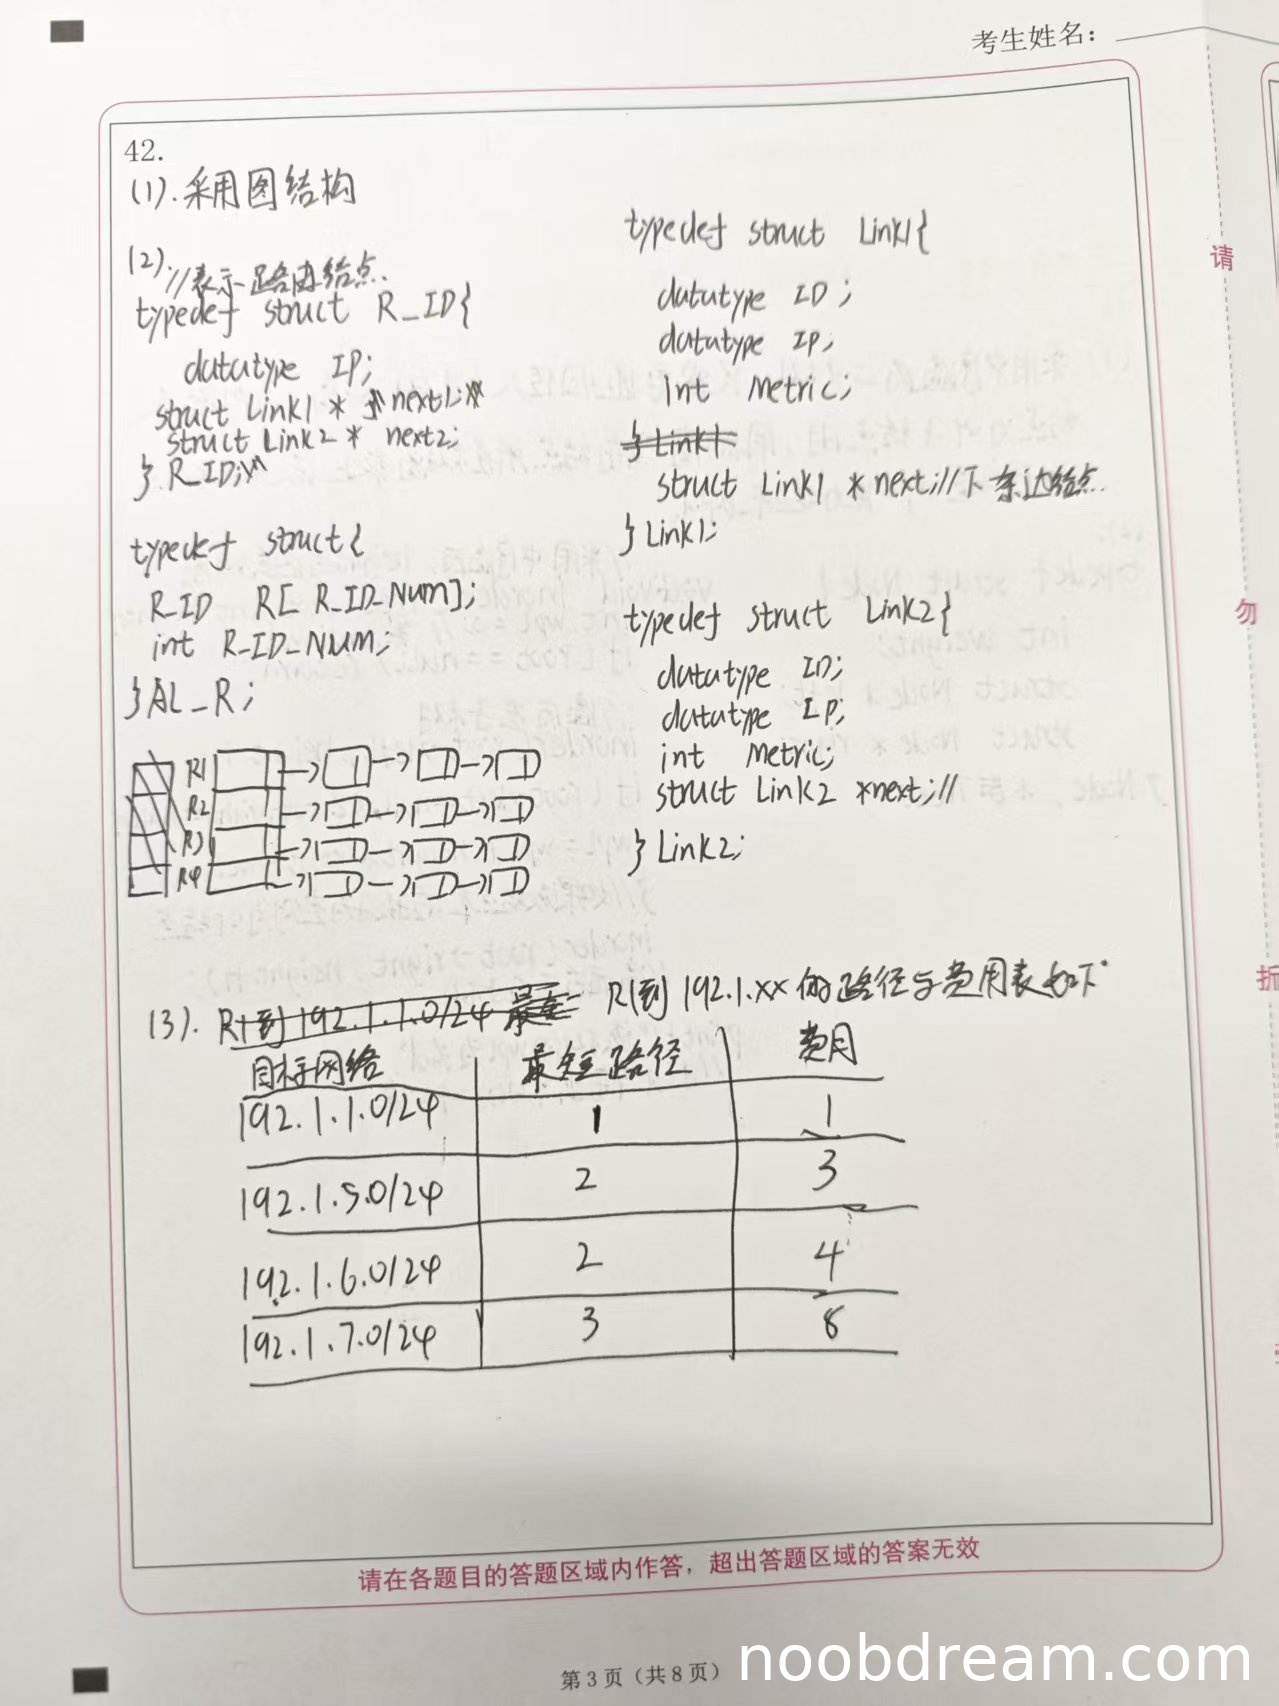 考生姓名：
42.
(1).采用图结构
(2).//表示路由结点.
typedef struct R_ID{
datatype IP;
struct Link1 * next1;
struct Link2 * next2;
} R_ID;
typedef struct{
R_ID R[R_ID_Num];
int R_ID_NUM;
}AL_R;
R1
R2
R3
R4
typedef struct Link1{
datatype ID;
datatype IP;
int Metric;
} Link1
struct Link1 *next;//下一条边结点.
} Link1;
typedef struct Link2{
datatype ID;
datatype IP;
int Metric;
struct Link2 *next;//
} Link2;
(3). R1到192.1.1.0/24 最 R1到192.1.xx的路径与费用表如下
目标网络 最短路径 费用
192.1.1.0/24 1 1
192.1.5.0/24 2 3
192.1.6.0/24 2 4
192.1.7.0/24 3 8
请在各题目的答题区域内作答，超出答题区域的答案无效
第 3 页（共 8 页）
请
勿
折
noobdream.com